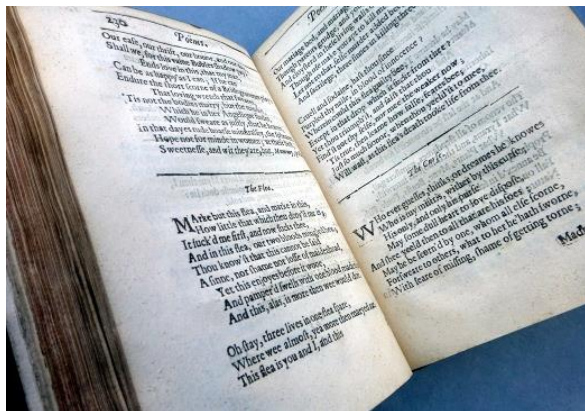 230
Poems.
Our ease, our thrift, our honor, and our day,
Shall we, for this vaine Bubles shadow pay?
Ends love in this, that my man,
Can be as happy as I can; If he can
Endure the short scorne of a Bridegroomes play?
That loving wretch that sweares,
'Tis not the bodies marry, but the mindes,
Which he in her Angelique findes,
Would sweare as justly, that he heares,
In that dayes rude hoarse minstralsey, the spheares.
Hope not for minde in women; at their best,
Sweetnesse, and wit they are, but, Mummy, possest.
The Flea.
MArke but this flea, and marke in this,
How little that which thou deny'st me is;
It suck'd me first, and now sucks thee,
And in this flea, our two bloods mingled bee;
Thou know'st that this cannot be said
A sinne, nor shame nor losse of maidenhead,
Yet this enjoyes before it wooe,
And pamper'd swells with one blood made of two,
And this, alas, is more then wee would doe.
Oh stay, three lives in one flea spare,
Where wee almost, yea more then maryed are.
This flea is you and I, and this
Poe
Our marriage bed, and marriage
Though parents grudge, and you,
And cloysterd in these living walls
Though use make you apt to kill
Let not to that, selfe murder added bee,
And sacrilege, three sinnes in killing three.
Cruell and sodaine, hast thou since
Purpled thy naile, in blood of innocence?
Wherein could this flea guilty bee,
Except in that drop which it suckt from thee?
Yet thou triumph'st, and saist that thou
Find'st not thy selfe, nor mee the weaker now;
'Tis true, then learne how false, feares bee;
Just so much honor, when thou yeeld'st to mee,
Will wast, as this flea's death tooke life from thee.
The Curse.
WHo ever guesses, thinks, or dreames he knowes
Who is my mistris, wither by this curse;
His only, and only his purse
May some dull heart to love dispose,
And shee yeeld then to all that are his foes;
May he be scorn'd by one, whom all else scorne,
Forsweare to others, what to her he hath sworne,
With feare of missing, shame of getting torne;
Mad